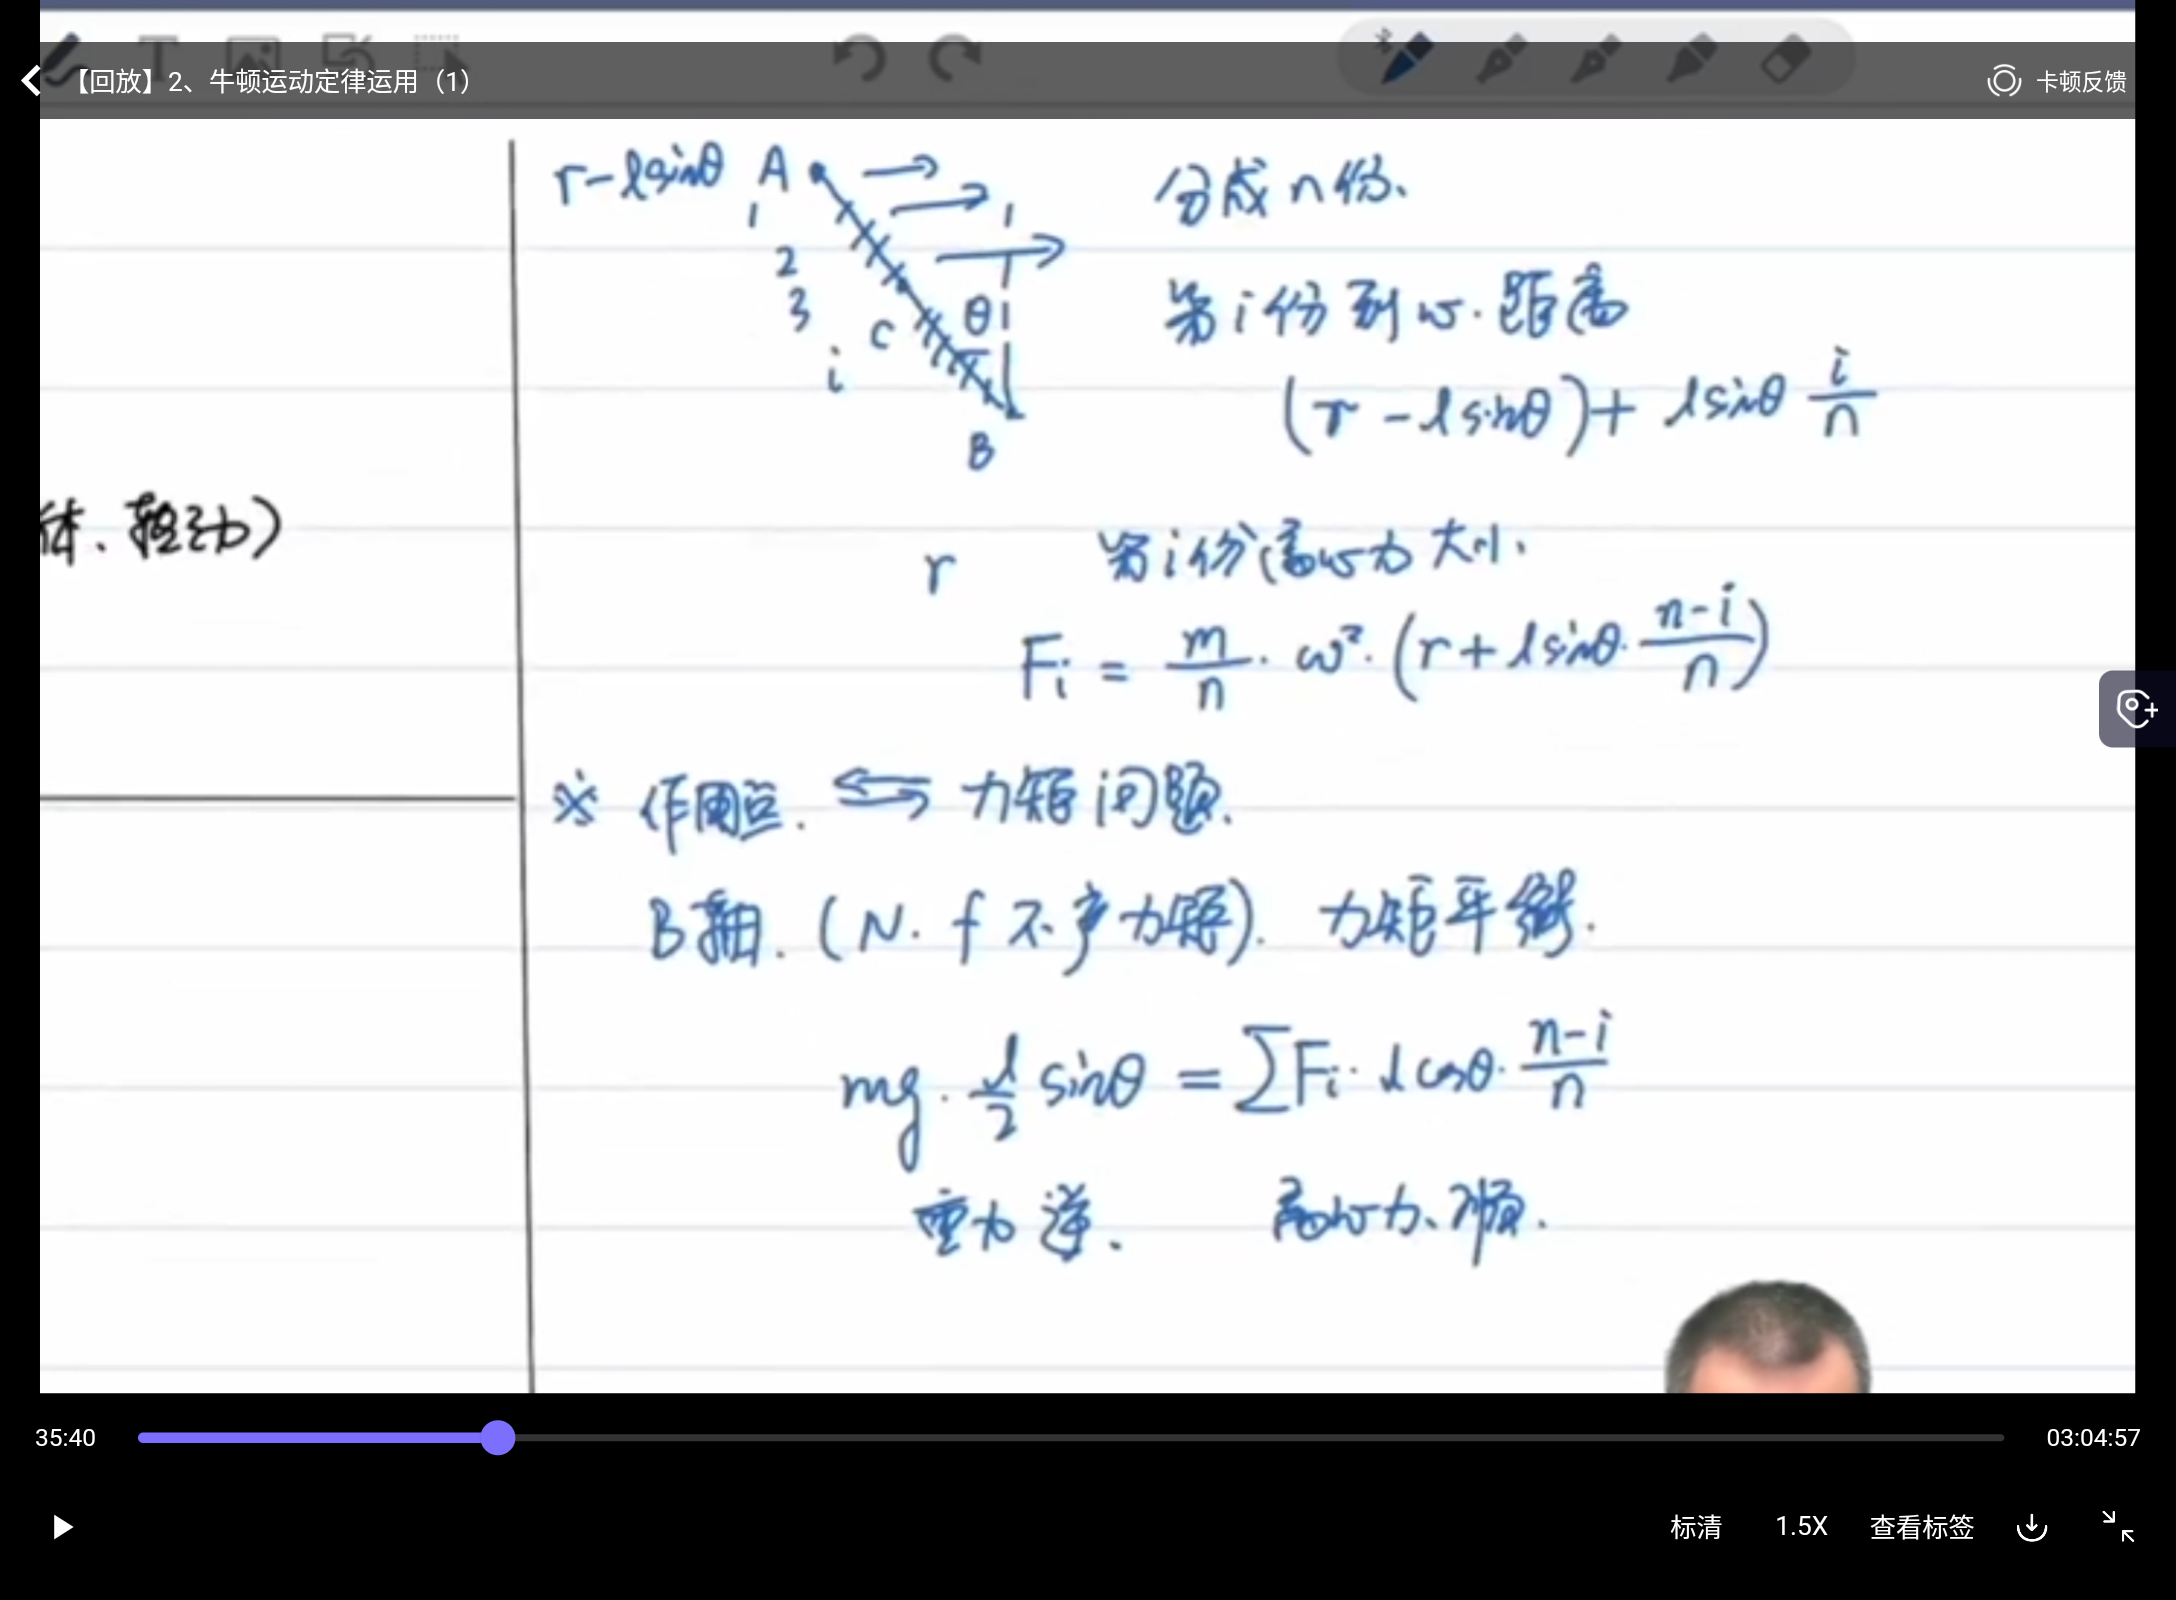 【回放】2、牛顿运动定律运用（1）
卡顿反馈
r-lsinθ A
1
2
3
i
C
θ
B
1
分成n份、
第i份到心.距离
(r-lsinθ)+lsinθ i/n
r
第i份离心力大小、
Fi = m/n · ω²·(r+lsinθ· (n-i)/n)
体、转动）
※ 作用点. ⇌ 力矩问题.
B轴.(N. f不产力矩). 力矩平衡.
mg · l/2 sinθ = ∑Fi · lcosθ · (n-i)/n
重力逆. 离心力、顺.
35:40
03:04:57
标清
1.5X
查看标签